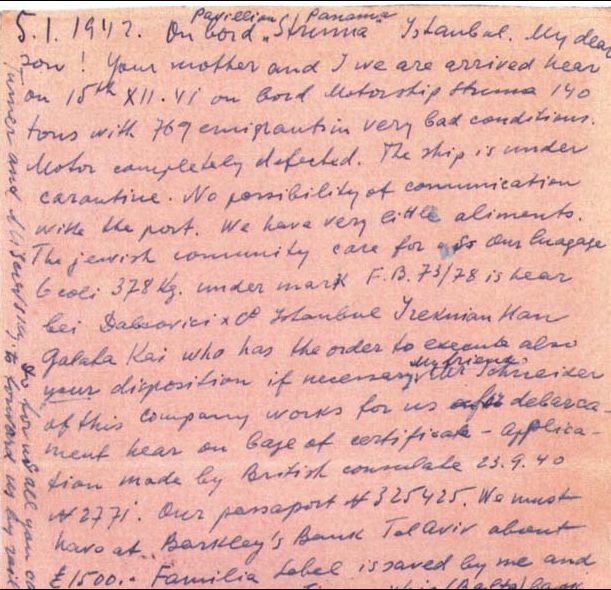 Pavillion Panama
5.1.1942. On bord "Struma" Istanbul. My dear
son! Your mother and I we are arrived hear
on 15th XII.41 on bord Motorship Struma 140
tons with 769 emigrants in very bad conditions.
Motor completely defected. The ship is under
carantine. No possibility of communication
with the port. We have very little aliments.
The jewish community care for us Our lugage
6 coli 378 Kg. under mark F.B. 73/78 is hear
bei Dabcovici x Co Istanbul Han
Galata Kai who has the order to execute also
my friend
your disposition if necessary Mr Schneider
of this company works for us debarca-
ment hear on base of certificate - applica-
tion made by British consulate 23.9.40
N 2771. Our passaport N 325425. We must
have at Barkley's Bank Tel Aviv about
£1500.- Familia Label is saved by me and
(Balta) back
Do for us all you
and to forward us by rail